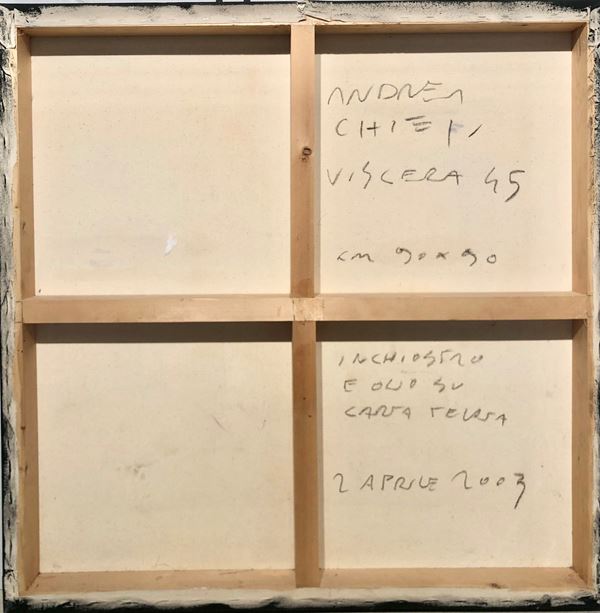 ANDREA
CHIESI
VISCERA 45
cm 90 x 90
INCHIOSTRO
E OLIO SU
CARTA TELATA
2 APRILE 2003